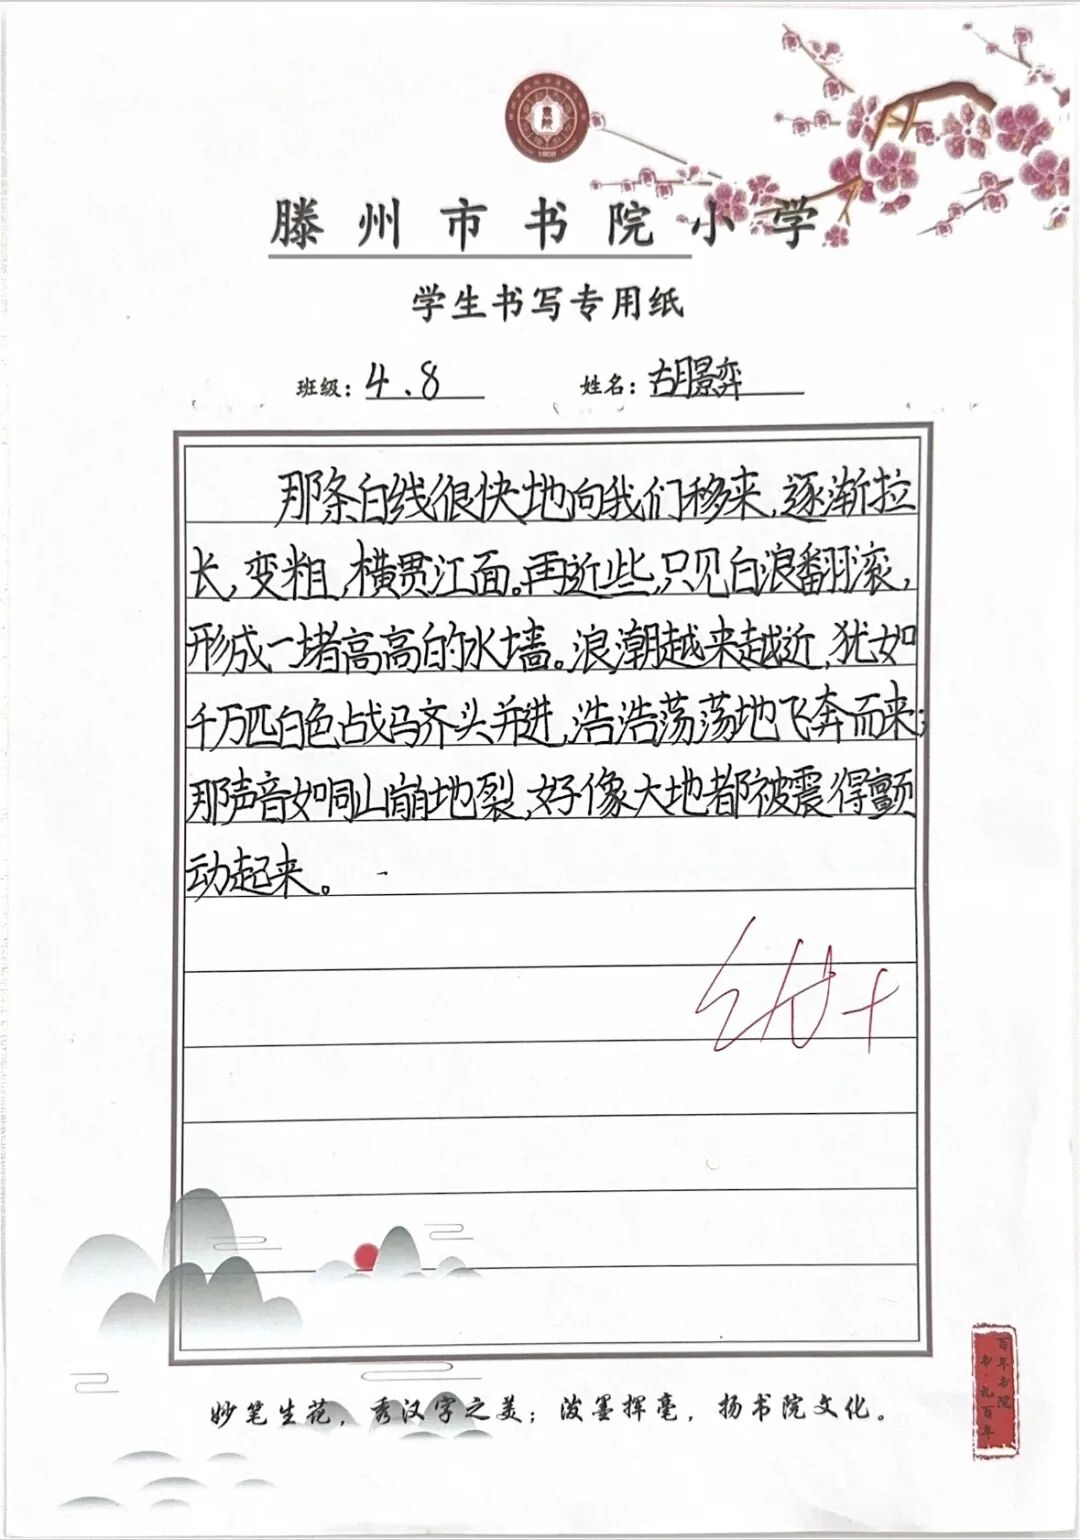 滕州市书院小学
学生书写专用纸
班级：4.8 姓名：胡景弈
那条白线很快地向我们移来，逐渐拉
长，变粗，横贯江面。再近些，只见白浪翻滚，
形成一堵高高的水墙。浪潮越来越近，犹如
千万匹白色战马齐头并进，浩浩荡荡地飞奔而来；
那声音如同山崩地裂，好像大地都被震得颤
动起来。
妙笔生花，秀汉字之美；泼墨挥毫，扬书院文化。
百年书院
书·礼百年